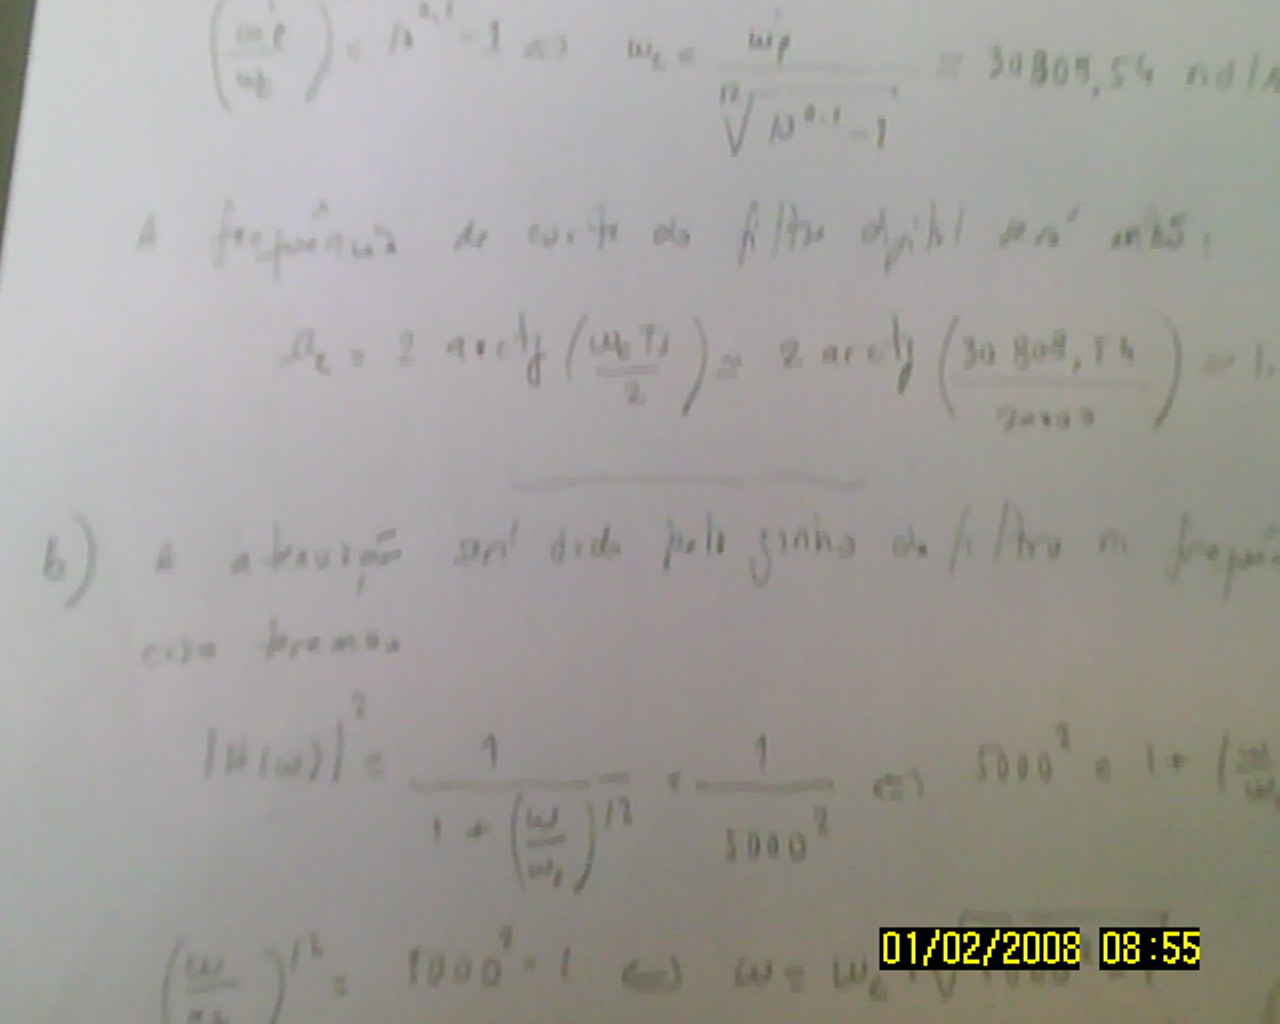 (ωp/ωc) = 10^0,1 - 1 ⇔ ωc = ωp / ¹²√(10^0.1 - 1) = 30808,54 rad/s
A frequência de corte do filtro digital será então:
Ωc = 2 arctg (ωc Ts / 2) = 2 arctg (30808,54 / 20000) = 1.
b) A atenuação será dada pelo ganho do filtro
teremos
|H(ω)|² = 1 / (1 + (ω/ωc)^12) = 1 / 5000² ⇔ 5000² = 1 + (ω/ωc
(ω/ωc)^12 = 5000² - 1 ⇔ ω = ωc
01/02/2008 08:55